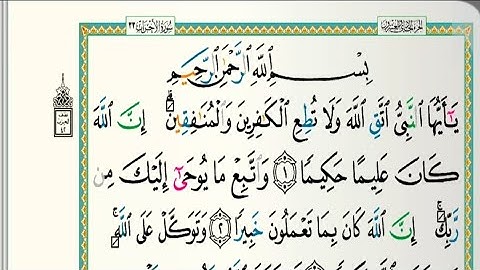 سُورَةُ الأَحْزَابِ ٣٣
بِسْمِ ٱللَّهِ ٱلرَّحْمَٰنِ ٱلرَّحِيمِ
يَٰٓأَيُّهَا ٱلنَّبِىُّ ٱتَّقِ ٱللَّهَ وَلَا تُطِعِ ٱلْكَٰفِرِينَ وَٱلْمُنَٰفِقِينَ إِنَّ ٱللَّهَ
كَانَ عَلِيمًا حَكِيمًا ١ وَٱتَّبِعْ مَا يُوحَىٰٓ إِلَيْكَ مِن
رَّبِّكَ إِنَّ ٱللَّهَ كَانَ بِمَا تَعْمَلُونَ خَبِيرًا ٢ وَتَوَكَّلْ عَلَى ٱللَّهِ